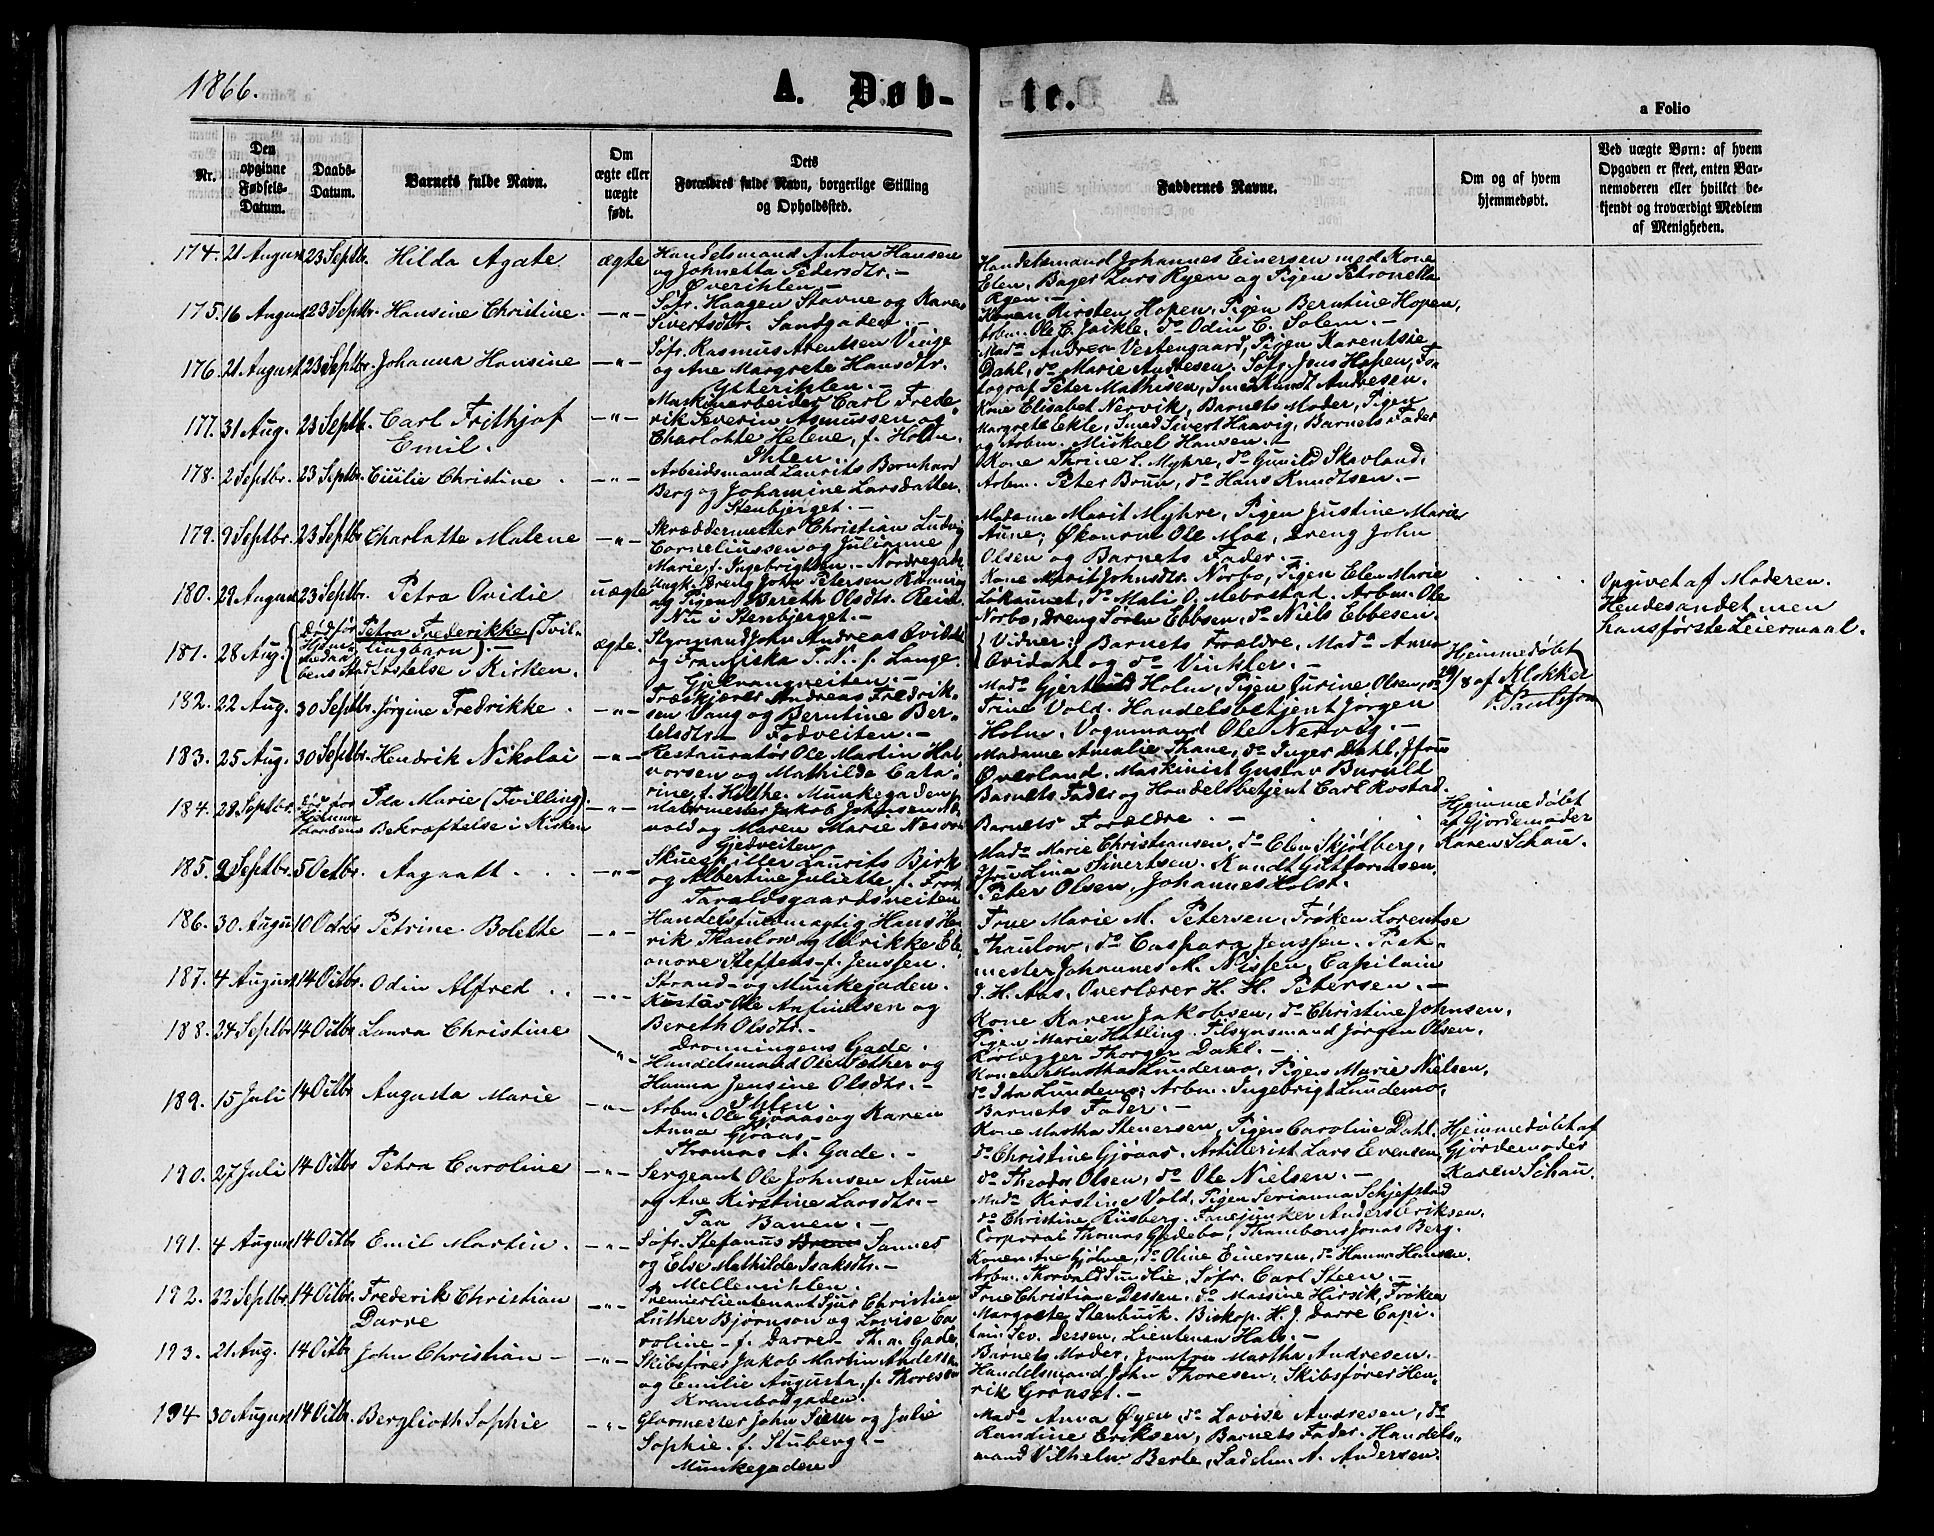 1866.
A. Døb-
te.
a Folio
Nr.
Den
opgivne
Fødsels-
Datum.
Daabs-
Datum.
Barnets fulde Navn.
Om
ægte eller
uægte
født.
Dets
Forældres fulde Navn, borgerlige Stilling
og Opholdssted.
Faddernes Navne.
Om og af hvem
hjemmedøbt.
Ved uægte Børn: af hvem
Opgaven er skeet, enten Bar-
nemoderen eller hvilket be-
kjendt og troværdigt Medlem
af Menigheden.
174. 21 August 23 Septbr. Hilda Agate ægte
Handelsmand Anton Hansen
og Johnetta Pedersdtr. -
Øverihlen. -
Handelsmand Johannes Einersen med Kone
Elen, Bager Lars Ryen og Pigen Petronella
Ryen. -
175. 16 August 23 Septbr. Hansine Christine. -"-
Søfr. Haagen Stavne og Karen
Sivertsdtr. Sandgaden. -
Konen Kirsten Hopen, Pigen Berntine Hopen,
Arbm. Ole E. Jaikle, do Odin C. Solem. -
176. 21 August 23 Septbr. Johanna Hansine -"-
Søfr. Rasmus Arentsen Vinge
og Ane Margrete Hansdtr.
Ytterihlen. -
Mada Andrea Vestengaard, Pigen Karentsie
Dahl, do Marie Andresen. Søfr. Jens Hopen, Fo-
tograf Peter Mathisen, Smed Knudt Andresen.
177. 31 Aug. 23 Septb. Carl Frithjof
Emil. -"-
Maskinarbeider Carl Frede-
rik Severin Asmussen og
Charlotte Helene, f. Holm.
Ihlen.
Kone Elisabet Nervik, Barnets Moder, Pigen
Margrete Ekle, Smed Sivert Haavig, Barnets Fader
og Arbm. Mickael Hansen. -
178. 2 Septbr. 23 Septbr. Emilie Christine . -"-
Arbeidsmand Laurits Bernhard
Berg og Johannine Larsdatter.
Stenbjerget. -
Kone Thrine L. Myhre, do Gunild Skavland,
Arbm. Peter Bruv, do Hans Knudtsen. -
179. 9 Septbr. 23 Septbr. Charlotte Malene -"-
Skræddermester Christian Ludvig
Corneliussen og Julianne
Marie, f. Ingebrigtsen. - Nordregade
Madame Marit Myhre, Pigen Justine Marie
Aune, Økonom Ole Moe, Dreng John
Olsen og Barnets Fader. -
180. 29 August 23 Septbr. Petra Ovidie uægte
Ungk. Dreng John Petersen
og Pigen Bereth Olsdtr. Reid.
Nu i Stenbjerget. -
Kone Marit Johnsdtr. Norbo, Pigen Elen Marie
Likaunet, do Mali O. Mebostad. Arbm. Ole
Norbo, Dreng Søren Ebbsen, do Niels Ebbesen.
Opgivet af Moderen.
Hendes andet, men
hans første Leiermaal.
181. 28 Aug. Petra Frederikke (Tvil-
lingbarn). -
Stadfæstelse i Kirken. ægte.
Styrmand John Andreas Ovidahl
og Franziska T. N. f. Lange.
Gjelvangveiten. -
Vidner: Barnets Forældre, Mada Anna
Ovidahl og do Vinkler. -
Hjemmedøbt
29/8 af Klokker
Paulsson
182. 22 Aug. 30 Septbr. Jørgine Fredrikke . -"-
Træskjærer Andreas Fredrik-
sen Vang og Berntine Ber-
telsdtr. - Fodveiten. -
Mada Gjertrud Holm, Pigen Jurine Olsen, do
Trine Vold. Handelsbetjent Jørgen
Holm, Vognmand Ole Nervig. -
183. 25 Aug. 30 Septbr. Hendrik Nikolai -"-
Restauratør Ole Martin Hal-
vorsen og Mathilde Cata-
rine, f. Holthe. Munkegaden.
Madame Amalie Thane, do Inger Dahl, Jfru
Øverland. Maskinist Gustav Buruld
Barnets Fader og Handelsbetjent Carl Rostad.
184. 28 Septbr. Ida Marie (Tvilling).
Bekræftelse i Kirken -"-
Malermester Jakob Johnsen
vold og Maren Marie
Gjedveiten
Barnets Forældre -
Hjemmedøbt
af Gjordemoder
Karen Schau.
185. 2 Septbr. 5 Octbr. Aagaatt . . . -"-
Skuespiller Laurits Birk
og Albertine Juliette, f. Frost
Taraldsgaardsveiten
Mada Marie Christiansen, do Elen Skjølberg,
Jfru Lina Sivertsen. Knudt Guttormsen,
Peter Olsen, Johannes Holst.
186. 30 August 10 Octbr. Petrine Bolette -"-
Handelsfuldmægtig Hans Hen-
rik Thaulow og Ulrikke Ele-
anore Steffens f. Jenssen.
Strand- og Munkegaden.
Frue Marie M. Petersen, Frøken Lorentse
Thaulow, do Caspara Jenssen. Post-
mester Johannes M. Nissen, Capitain
J. H. Aas, Overlærer H. H. Petersen. -
187. 4 August 14 Octbr. Odin Alfred . . -"-
Kusk Ole Anfindsen og
Bereth Olsdtr. -
Dronningens Gade.
Kone Karen Jakobsen, do Christine Johnsen,
Pigen Marie Hatling. Tilsynsmand Jørgen Olsen,
Rørlægger Thorger Dahl. -
188. 24 Septbr. 14 Octbr. Laura Christine -"-
Handelsmand Ole Sæther og
Hanna Jensine Olsdtr. -
Ihlen
Konen Martha Lundemo, Pigen Marie Nielsen,
do Ida Lundemo, Arbm. Ingebrigt Lundemo,
Barnets Fader. -
189. 15 Juli 14 Octbr. Augusta Marie -"-
Arbm. Ole Gjøraas og Karen
Anna Gjøraas.
Thomas A. Gade. -
Kone Martha Stenersen, Pigen Caroline Dahl,
do Christine Gjøraas. Artillerist Lars Evensen,
do Theodor Olsen, do Ole Nielsen. -
Hjemmedøbt af
Gjordemoder
Karen Schau.
190. 27 Juli 14 Octbr. Petra Caroline -"-
Sergeant Ole Johnsen Aune
og Ane Kirstine Larsdtr. -
Paa Banen. -
Mada Kirstine Vold, Pigen Serianna Schjefstad
do Christine Riisberg. Fruejunker Anders Eriksen,
Corporal Thomas Gjedebo, Thambour Jonas Berg.
191. 4 August 14 Octbr. Emil Martin. -"-
Søfr. Stefanus Sannes
og Else Mathilde Isaksdtr. -
Mellemihlen.
Konen Ane Gjølme, do Oline Einersen, do Hanna Hanson.
Arbm. Thorvald Sundlie, Søfr. Carl Steen. -
192. 22 Septbr. 14 Octbr. Frederik Christian
Darre -"-
Premierlieutenant Sjur Christian
Luther Bjørnson og Lovise Ca-
roline f. Darre - Th. A. Gade.
Frue Christiane Dessen. do Massine Hirsik, Frøken
Margrete Stenbuck, Biskop H. J. Darre, Capi-
tain Sev. Dessen, Lieutenan Hals. -
193. 21 Aug. 14 Octbr. John Christian - -"-
Skibsfører Jakob Martin Andersen
og Emilie Augusta, f. Thoresen
Krambodgaden.
Barnets Moder, Jomfru Martha Andresen.
Handelsmand John Thoresen, Skibsfører Hen-
rik Grønset. -
194 30 August 14 Octbr. Bergliot Sophie -"-
Glarmester John Siem og Julie
Sophie f. Stuberg. -
Munkegaden
Mada Anna Øyen, do Lovise Andresen, do
Randine Eriksen, Barnets Fader. Handels-
mand Vilhelm Berle, Sadelm. A. Andersen.